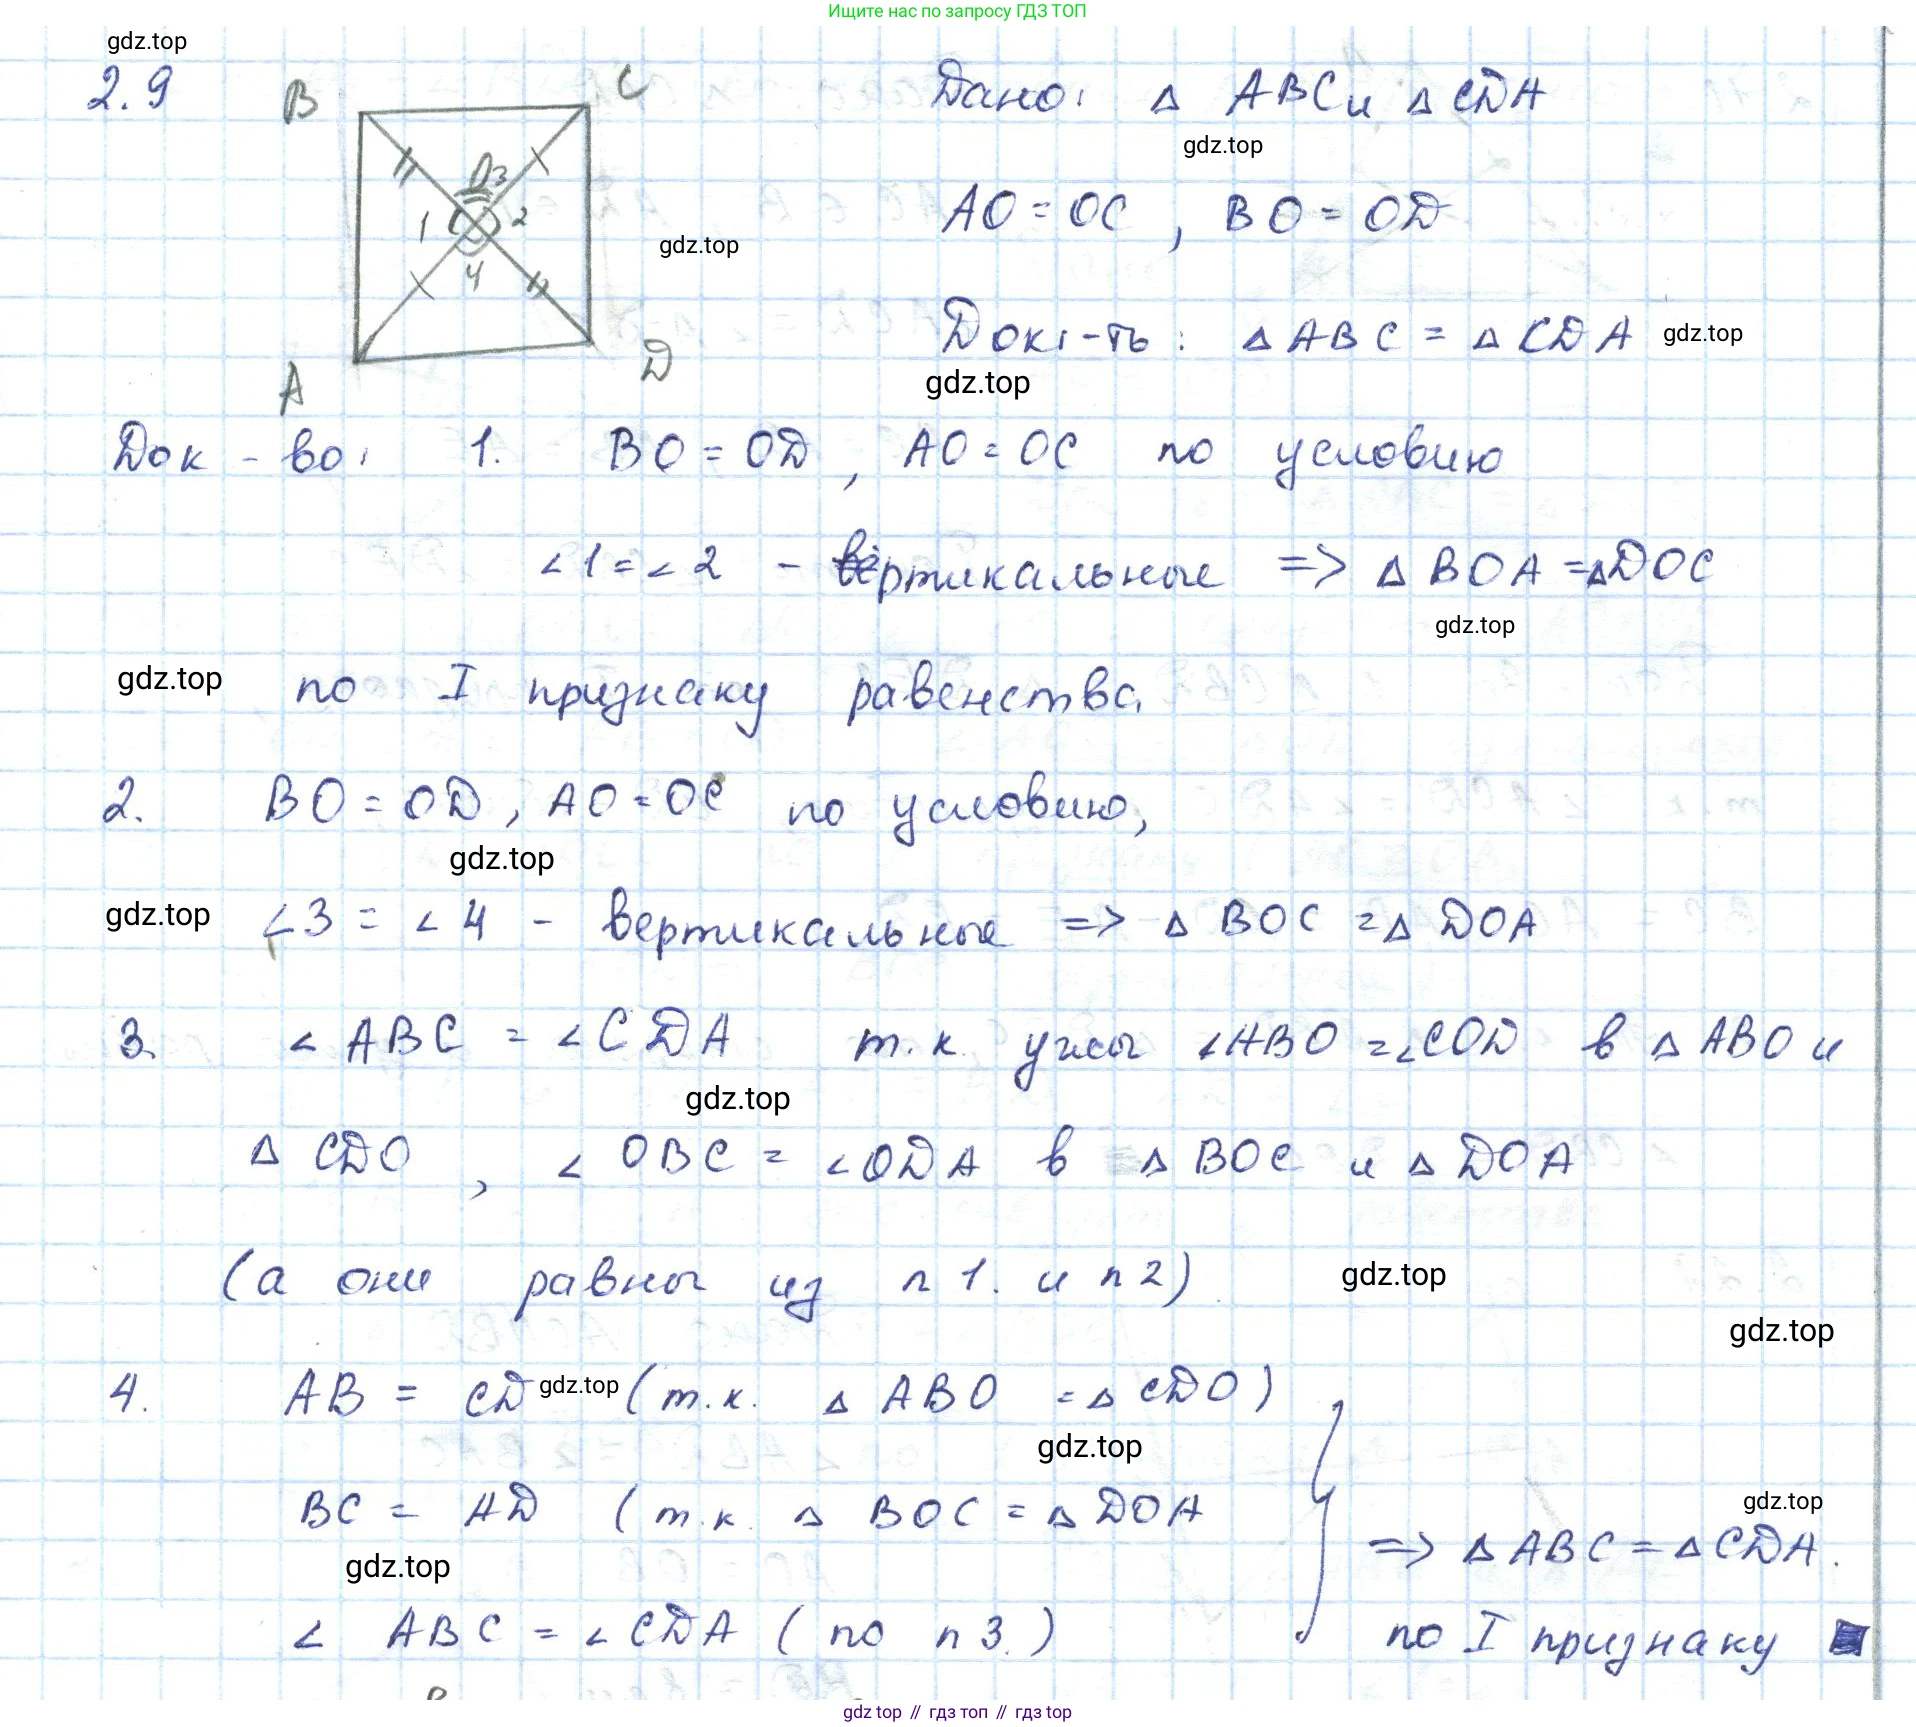 Ищите нас по запросу ГДЗ ТОП
gdz.top
2.9
B
C
Дано: △ ABC и △ CDA
gdz.top
O
3
1
2
4
AO = OC , BO = OD
gdz.top
Док-ть : △ ABC = △ CDA
gdz.top
gdz.top
A
D
Док - во: 1. BO = OD , AO = OC по условию
∠1 = ∠2 - вертикальные => △ BOA = △DOC
gdz.top
gdz.top
по I признаку равенства.
2. BO = OD, AO = OC по условию,
gdz.top
gdz.top
∠3 = ∠4 - вертикальные => △ BOC = △ DOA
3. ∠ ABC = ∠CDA т.к. углы ∠ABO = ∠COD в △ ABO и
gdz.top
△ CDO , ∠ OBC = ∠ODA в △ BOC и △ DOA
(а они равны из п 1. и п 2)
gdz.top
gdz.top
4. AB = CD (т.к. △ ABO = △ CDO)
gdz.top
gdz.top
BC = AD (т.к. △ BOC = △ DOA
gdz.top
gdz.top
=> △ ABC = △ CDA.
∠ ABC = ∠ CDA ( по п 3.)
по I признаку
gdz.top // гдз топ // gdz top